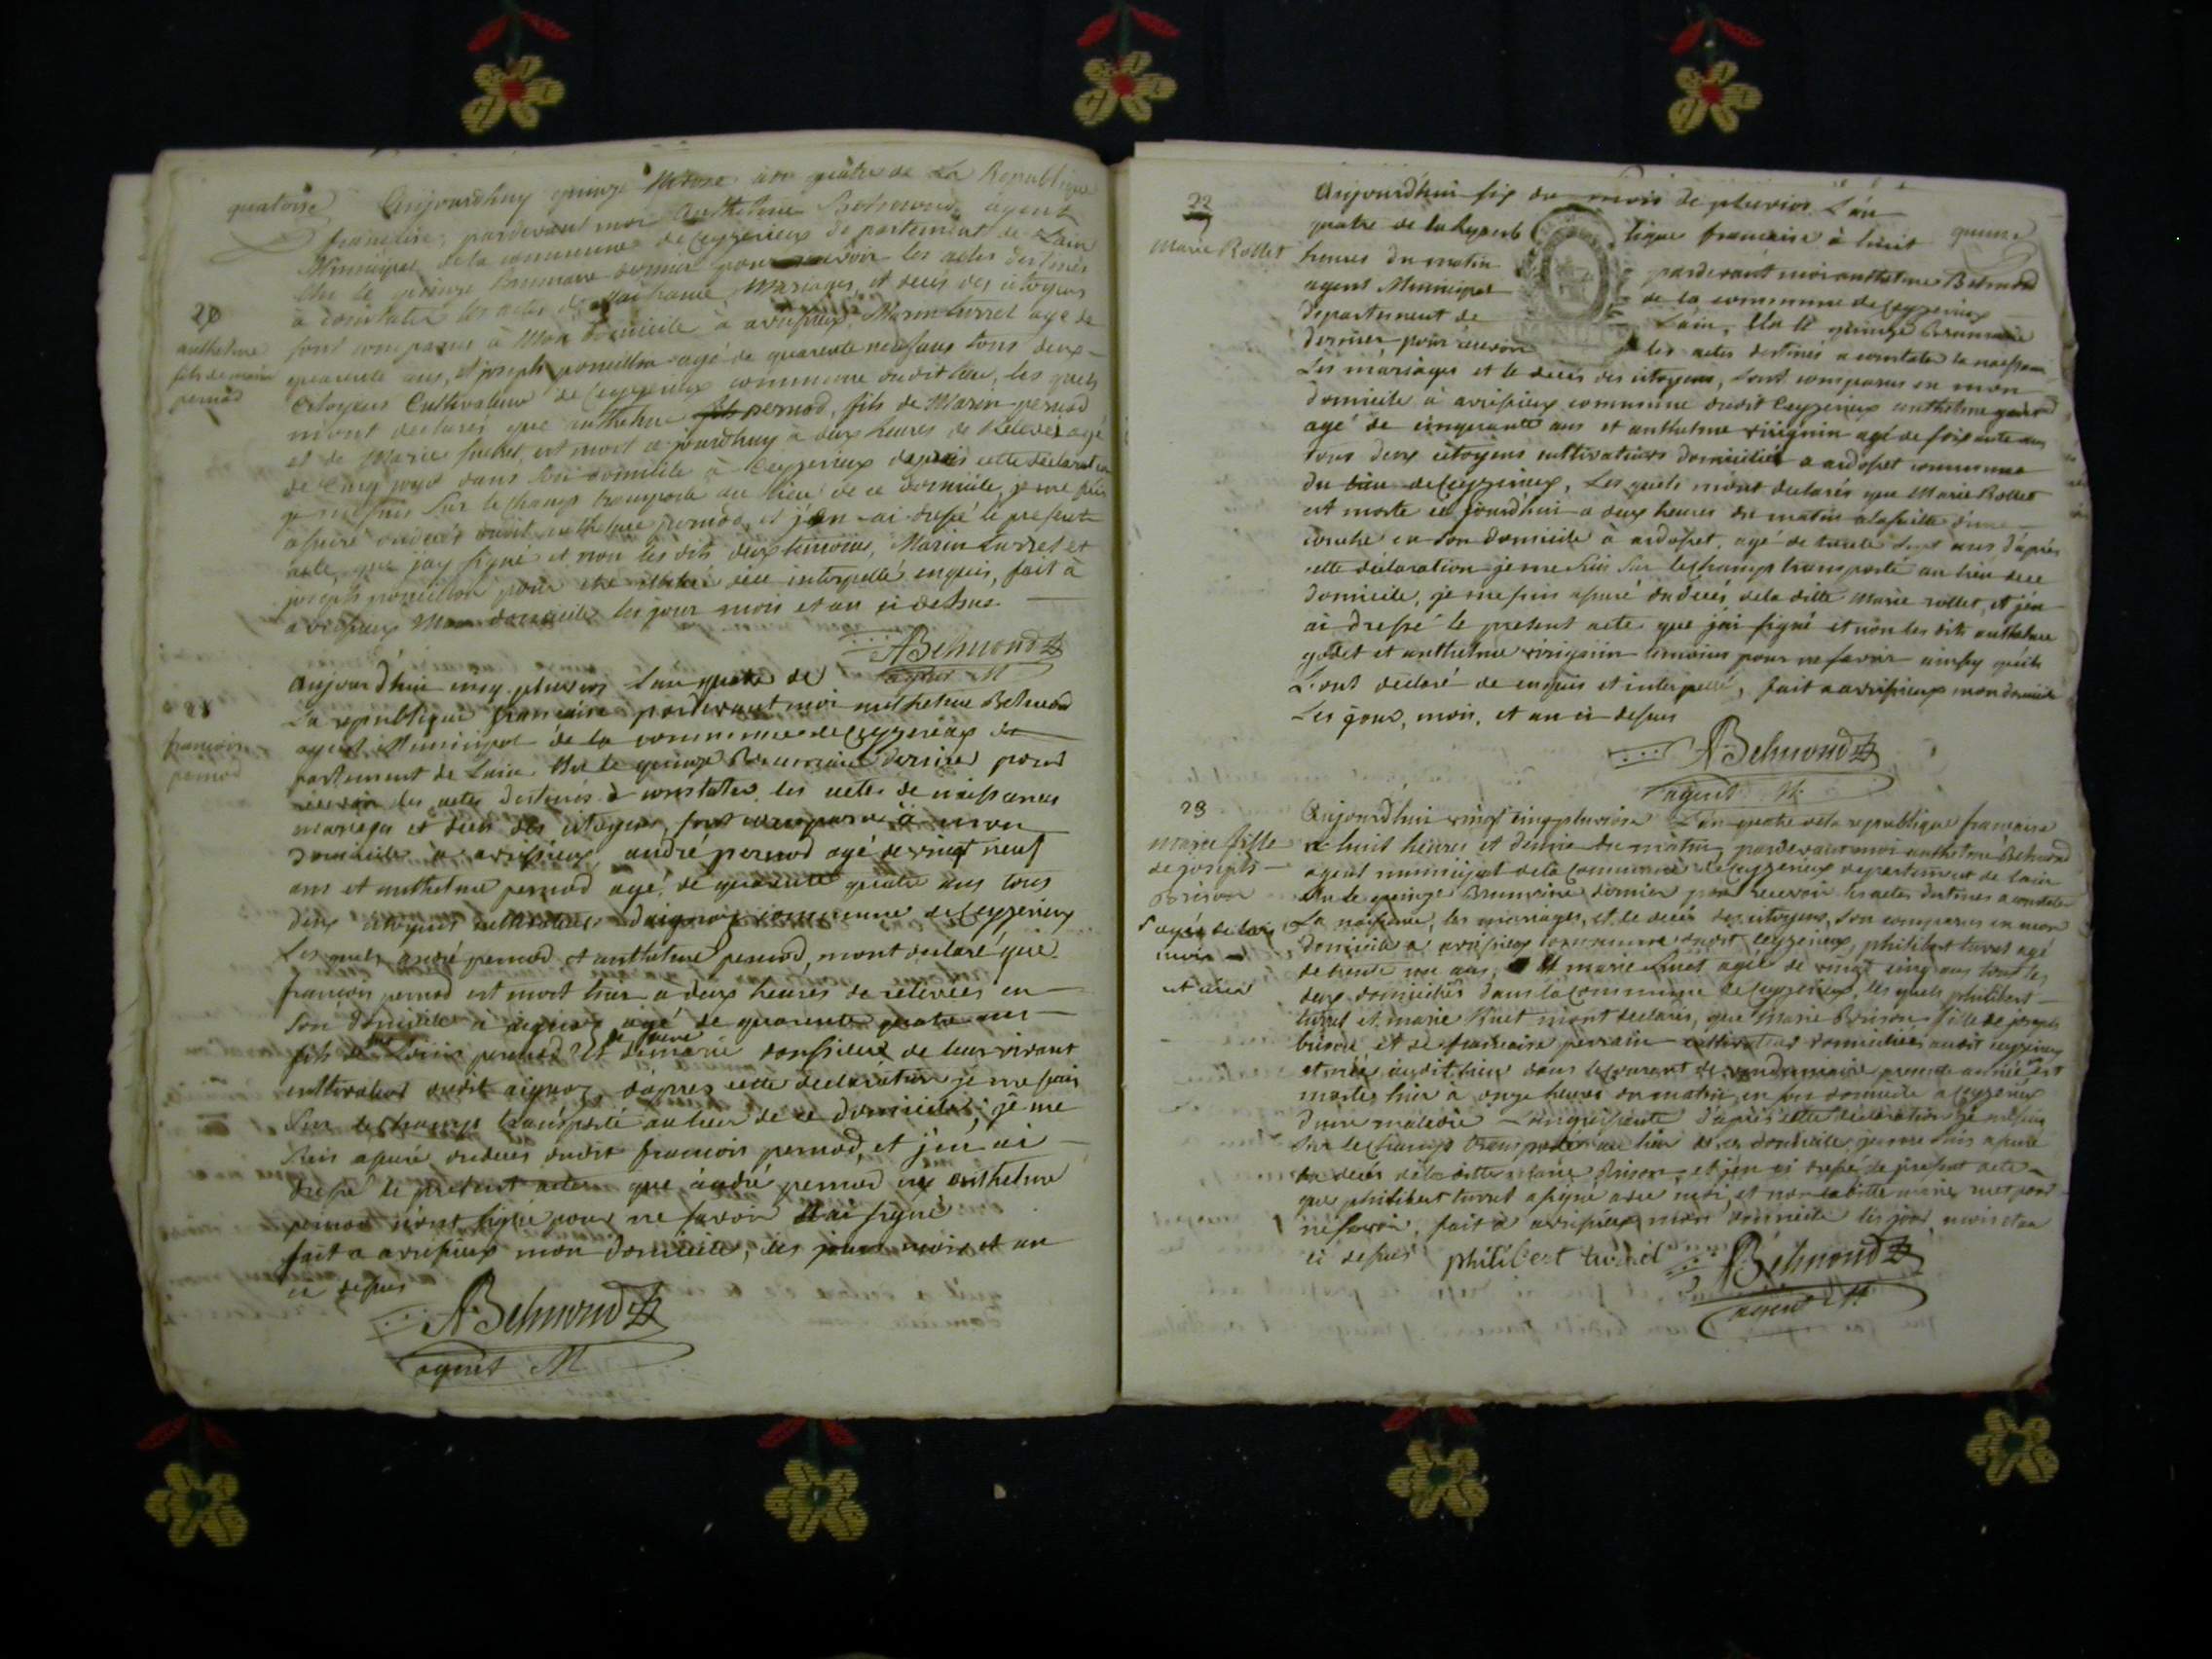 quatorse
Aujourdhuy quinze Nivose an quatre de La Republique
francaise, pardevant moi Anthelme Belmond agent
Municipal de la commune de Ceyzerieux departement de Lain
Elu le quinze Brumaire dernier pour recevoir les actes destinés
à constater les actes de Naissance, Mariages, et decés des citoyens
sont comparus à Mon domicile à avrissieux, Marin turrel agé de
quarente ans, et joseph ponceillon agé de quarente neuf ans tous deux
Citoyens Cultivateur de Ceyzerieux commune dudit lieu, les quels
mont declarés que anthelme pernod, fils de Marin pernod
et de Marie suchet, est mort ce jourdhuy à deux heures de Relevée agé
de cinq jours dans son domicile à Ceyzerieux daprais cette declaration
je me suis sur le champ transporté au lieu de ce domicile, je me suis
assuré du decés dudit anthelme pernod et j'en ai dressé le present
acte, que jay signé et non les dits deux temoins, Marin turrel et
joseph ponceillon pour etre illitéré de ce interpellé enquis, fait à
avrissieux Mon domicile les jour mois et an ci dessus
20
anthelme
fils de marin
pernod
ABelmond
agent M
21
francois
pernod
Aujourd'hui cinq pluvios l'an quatre de
La republique francaise pardevant moi anthelme Belmond
agent Municipal de la commune de Ceyzerieux de
partement de Lain Elu le quinze Brumaire dernier pour
recevoir les actes destinés à constater les actes de naissances
mariages et decés des citoyens, sont comparu à mon
Domicile à avrissieux andré pernod agé de vingt neuf
ans et anthelme pernod agé de quarente quatre ans tous
deux citoyens cultivateurs daignoz commune de Ceyzerieux
Les quels andré pernod et anthelme pernod, mont declaré que
francois pernod est mort hier à deux heures de relevées en
Son domicile à aignoz agé de quarente quatre ans
fils de feu Louis pernod et de feue marie de leur vivant
cultivateur dudit aignoz, d'apres cette declaration je me suis
Sur le champ transporté au lieu de ce domicile je me
suis assuré du deces dudit francois pernod, et j'en ai
dressé le present acte que andré pernod ny anthelme
pernod n'ont signé pour ne savoir et ai signé
fait a avrissieux mon domicile, les jours mois et an
ci dessus
ABelmond
agent M
22
Marie Rollet
quinze
Aujourd'hui six du mois de pluvios L'an
quatre de la Republique francaise à huit
heures du matin pardevant moi anthelme Belmond
agent Municipal de la commune de Ceyzerieux
Departement de Lain, Elu le quinze Brumaire
dernier pour recevoir les actes destinés a constater la naissance
Les mariages et le decés des citoyens, sont comparus en mon
domicile à avrissieux commune dudit Ceyzerieux anthelme godet
agé de cinquante ans et anthelme virignin agé de soixante ans
tous deux citoyens cultivateurs domiciliés a ardosset commune
du lieu de Ceyzerieux, Les quels m'ont declarés que Marie Rollet
est morte ce jourd'hui a deux heures du matin a la suitte d'une
couche en son domicile à ardosset, agé de trente sept ans d'après
cette déclaration je me suis sur le champ transporté au lieu de ce
Domicile, je me suis assuré du decés de la ditte Marie rollet, et j'en
ai dressé le present acte que j'ai signé et non les dits anthelme
godet et anthelme virignin temoins pour ne savoir ainsy qu'ils
L'ont declaré de enquis et interpellé, fait a avrissieux mon domicile
Les jour, mois, et an ci dessus
ABelmond
agent M.
23
Marie fille
de joseph
Brison
agée de
mois
Aujourd'hui vingt cinq pluviose L'an quatre de la republique francaise
a huit heures et demie du matin, pardevant moi anthelme Belmond
agent municipal de la Commune de Ceyzerieux departement de lain
Elu le quinze Brumaire dernier pour recevoir les actes destinés a constater
La naissance, les mariages, et le decés des citoyens, son comparus en mon
domicile a avrissieux commune dudit Ceyzerieux, philibert turrel agé
de trente un ans, et marie agée de vingt cinq ans tout les
deux domiciliés dans la commune de Ceyzerieux, les quels philibert
turrel et marie mont declarés, que Marie Brison fille de joseph
brison et de francoise perrain cultivateurs domiciliés audit ceyzerieux
et née audit lieu dans le courent de vendemiaire presente année est
morte hier à onze heures du matin en son domicile a Ceyzerieux
d'une maladie d'après cette declaration je me suis
sur le champ transporté au lieu de ce domicile, je me suis assuré
du decés de la ditte marie Brison, et j'en ai dressé le present acte
que philibert turrel a signé avec moi, et non la ditte marie pour
ne savoir, fait à avrissieux mon domicile les jour, mois et an
ci dessus philibert turrel ABelmond
agent M